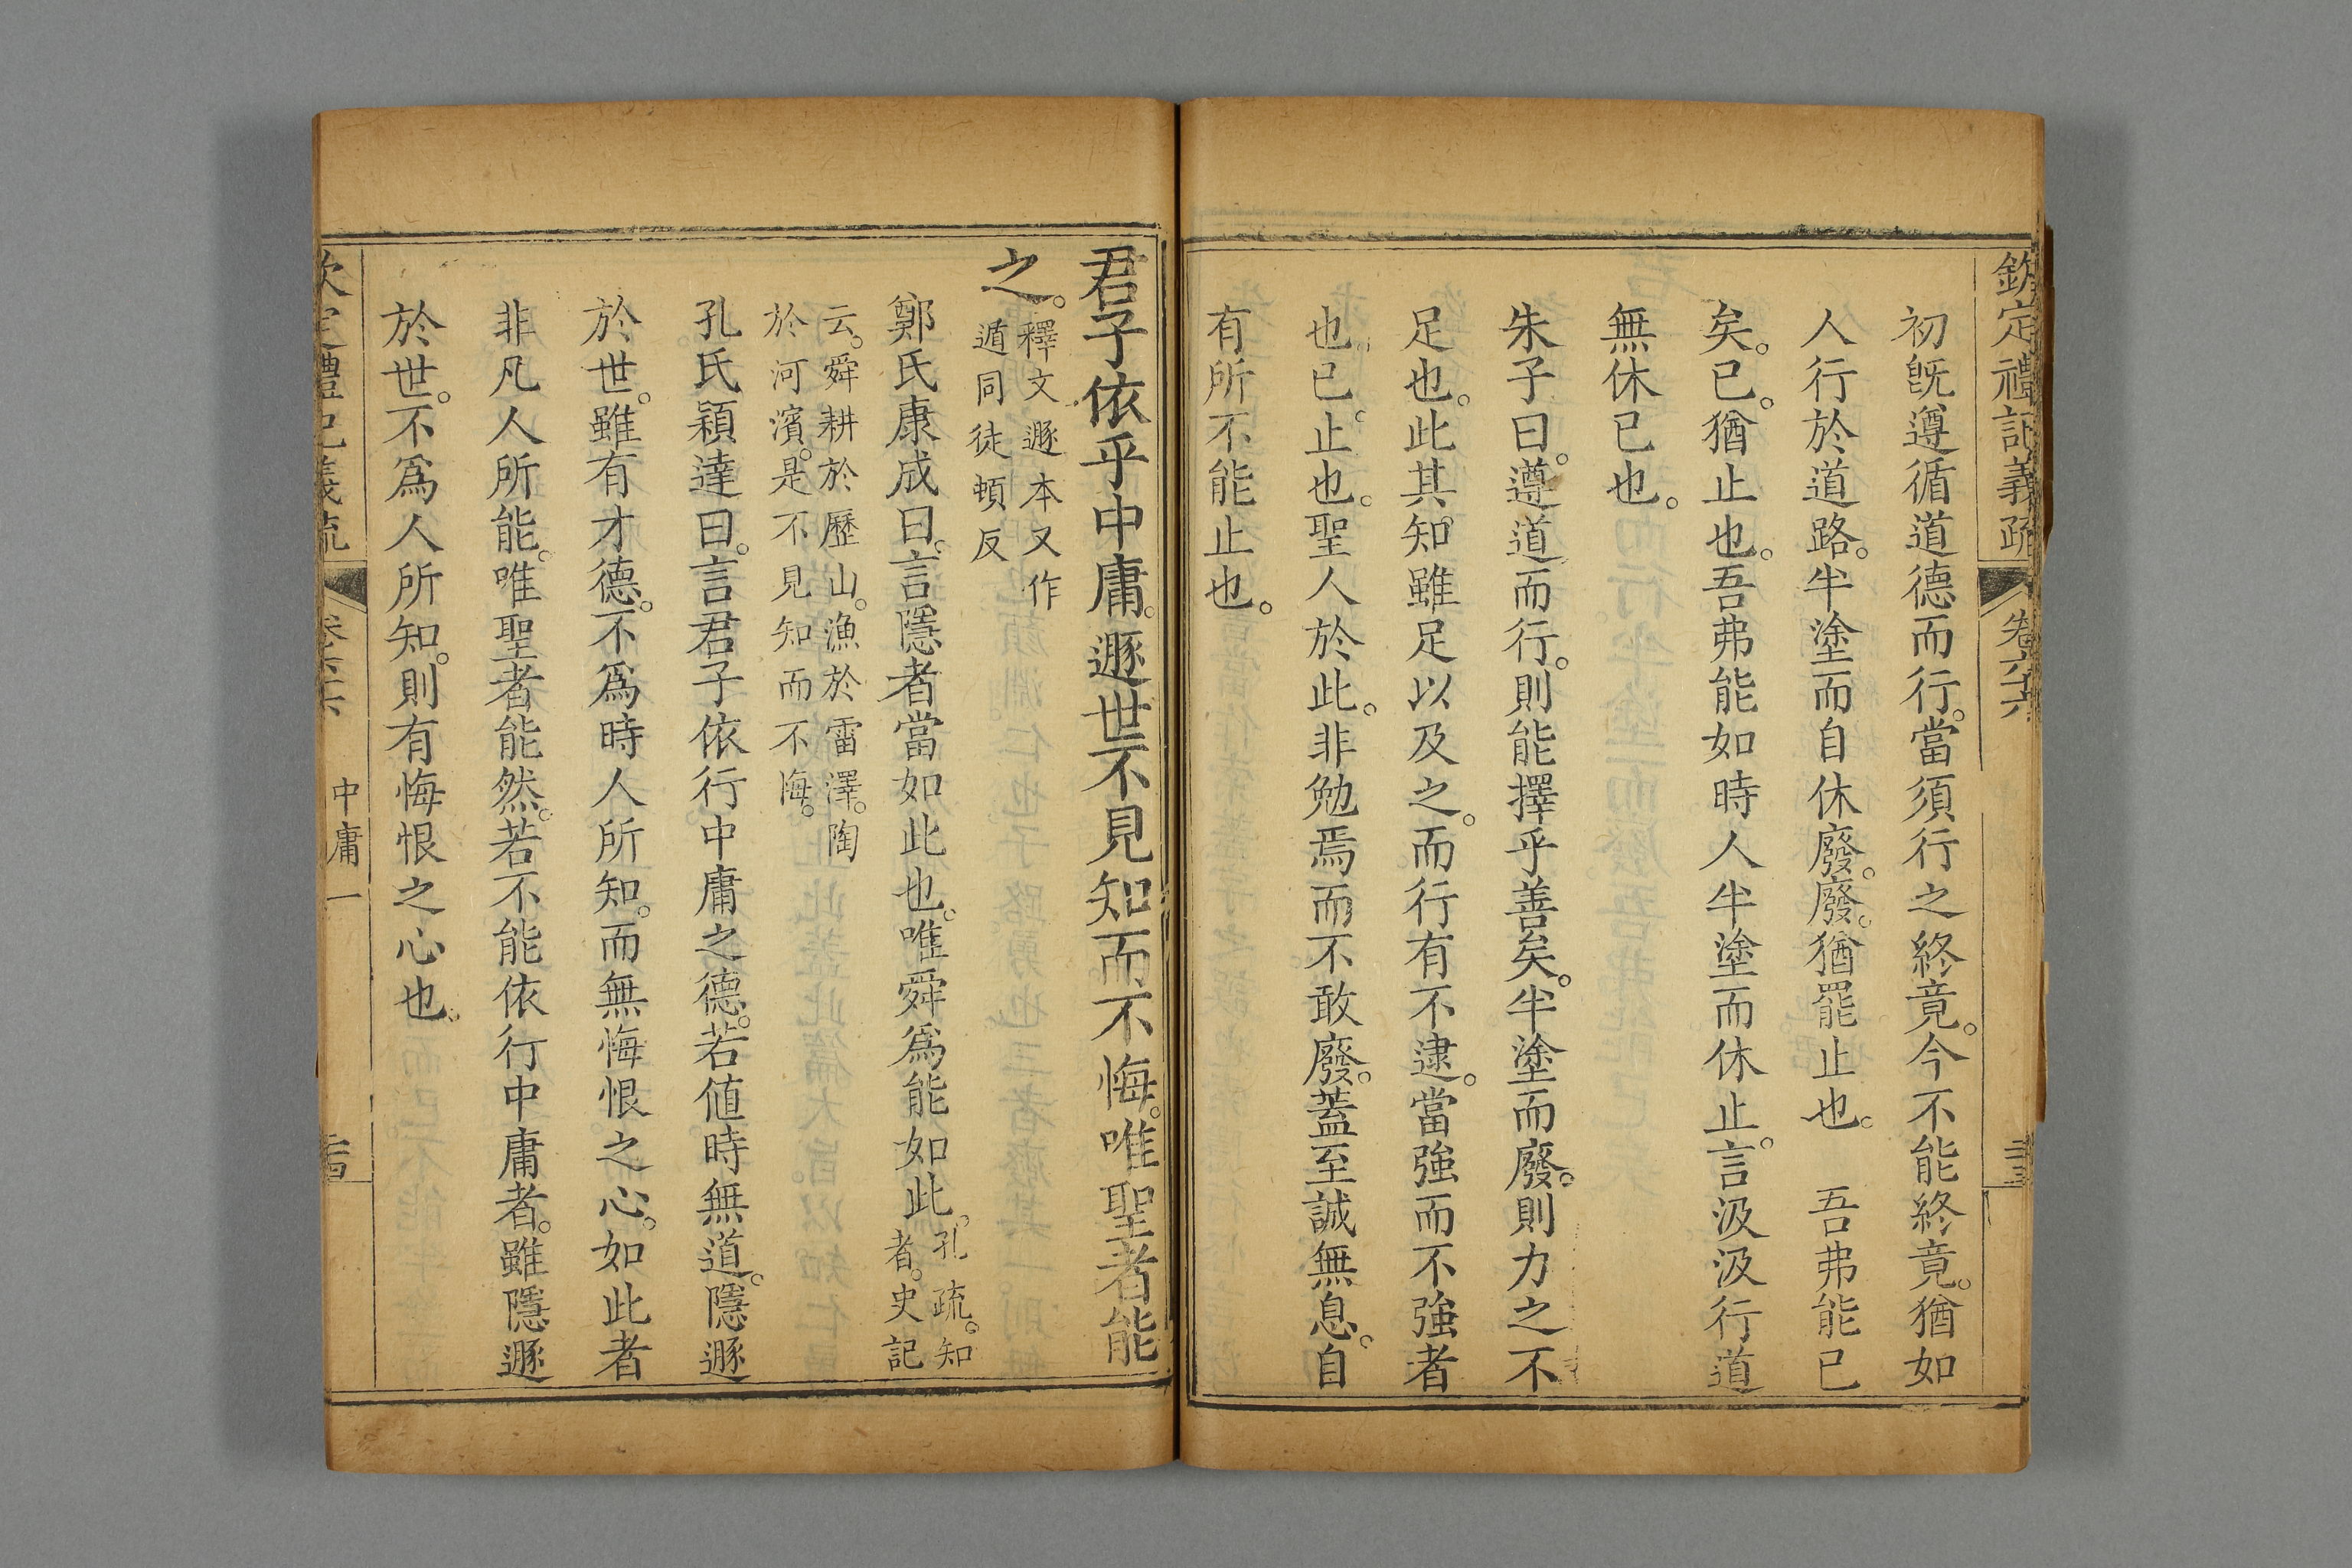 欽定禮記義疏 卷六十六 三十三
初旣遵循道德而行。當須行之終竟。今不能終竟。猶如
人行於道路。半塗而自休廢。廢。猶罷止也。 吾弗能已
矣。已。猶止也。吾弗能如時人半塗而休止。言汲汲行道
無休已也。
朱子曰。遵道而行。則能擇乎善矣。半塗而廢。則力之不
足也。此其知雖足以及之。而行有不逮。當強而不強者
也。已。止也。聖人於此。非勉焉而不敢廢。蓋至誠無息。自
有所不能止也。
君子依乎中庸。遯世不見知而不悔。唯聖者能
之。釋文遯本又作
遁同徒頓反
鄭氏康成曰。言隱者當如此也。唯舜爲能如此。孔疏。知
者。史記
云。舜耕於歷山。漁於雷澤。陶
於河濱。是不見知而不悔。
孔氏穎達曰。言君子依行中庸之德。若値時無道。隱遯
於世。雖有才德。不爲時人所知。而無悔恨之心。如此者
非凡人所能。唯聖者能然。若不能依行中庸者。雖隱遯
於世。不爲人所知。則有悔恨之心也。
欽定禮記義疏 卷六十六 中庸一